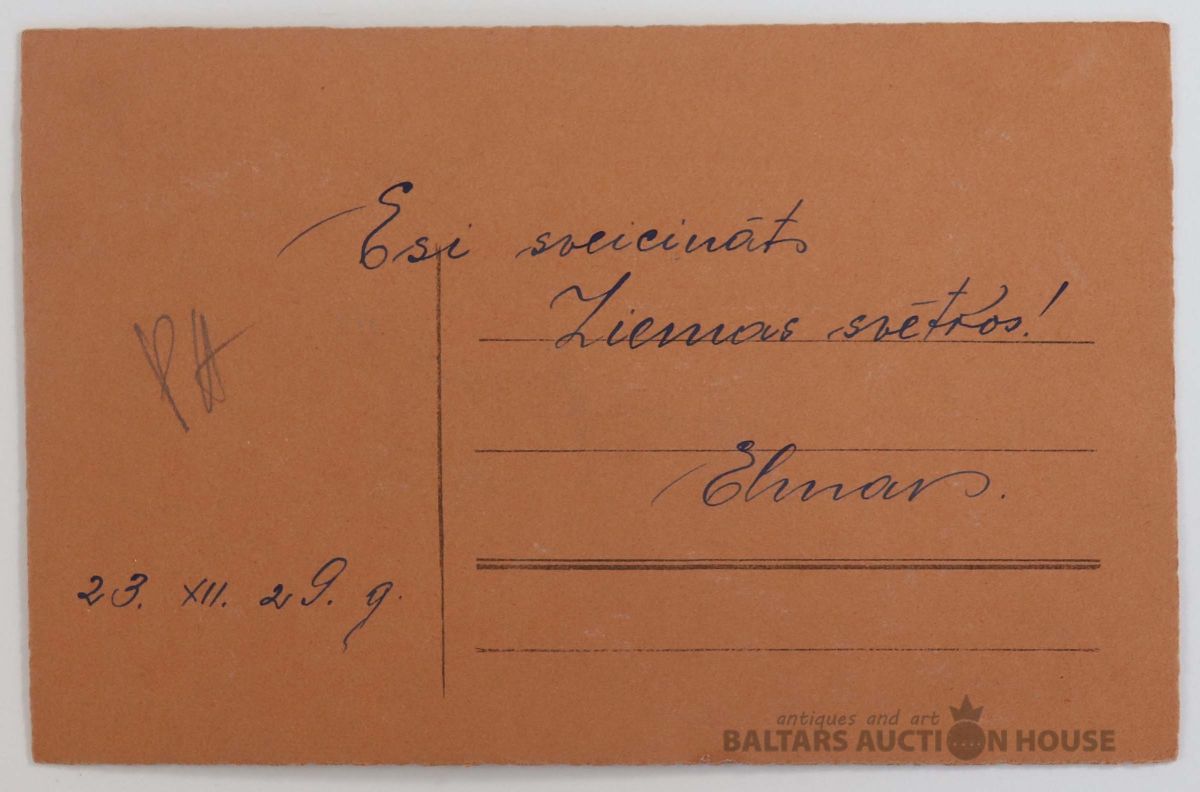 Esi sveicināts
Ziemas svētkos!
Elmars.
23. XII. 29. g.
antiques and art
BALTARS AUCTION HOUSE